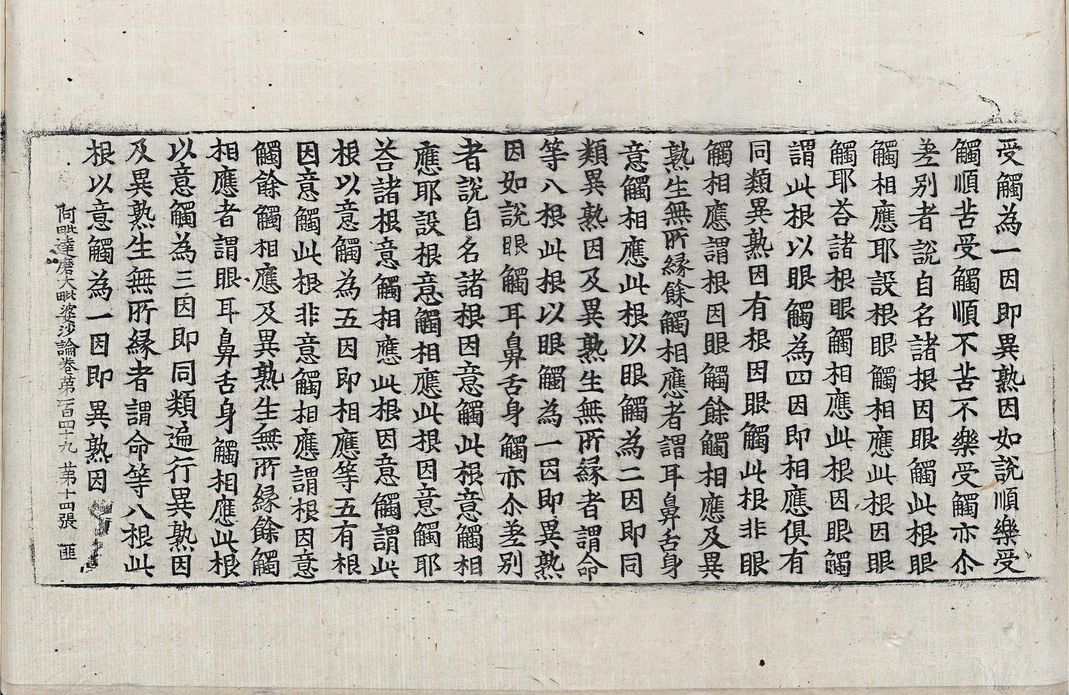 受觸為一因即異熟因如說順樂受
觸順苦受觸順不苦不樂受觸亦尒
差別者說自名諸根因眼觸此根眼
觸相應耶設根眼觸相應此根因眼
觸耶荅諸根眼觸相應此根因眼觸
謂此根以眼觸為四因即相應俱有
同類異熟因有根因眼觸此根非眼
觸相應謂根因眼觸餘觸相應及異
熟生無所緣餘觸相應者謂耳鼻舌身
意觸相應此根以眼觸為二因即同
類異熟因及異熟生無所緣者謂命
等八根此根以眼觸為一因即異熟
因如說眼觸耳鼻舌身觸亦尒差別
者說自名諸根因意觸此根意觸相
應耶設根意觸相應此根因意觸耶
荅諸根意觸相應此根因意觸謂此
根以意觸為五因即相應等五有根
因意觸此根非意觸相應謂根因意
觸餘觸相應及異熟生無所緣餘觸
相應者謂眼耳鼻舌身觸相應此根
以意觸為三因即同類遍行異熟因
及異熟生無所緣者謂命等八根此
根以意觸為一因即異熟因
阿毗達磨大毗婆沙論卷第一百四十九 第十四張 匪